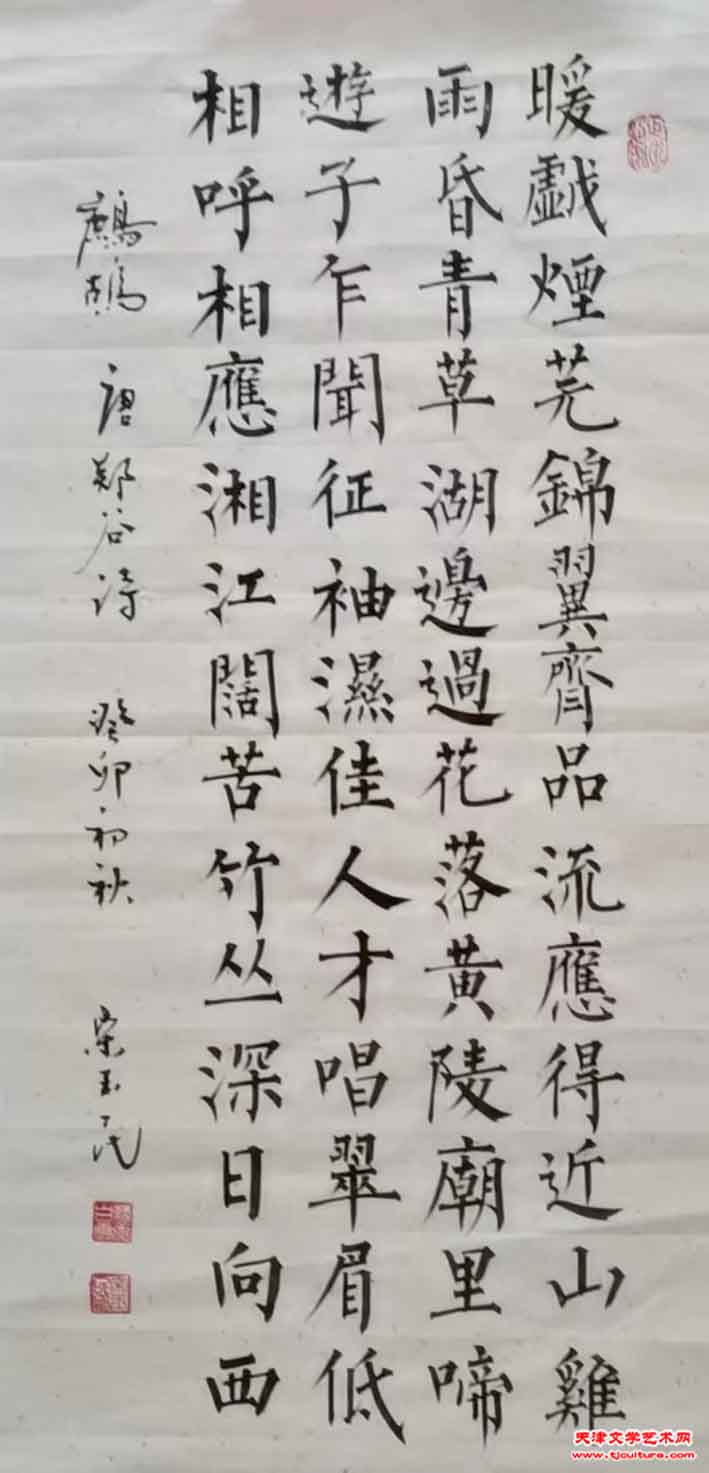 暖戲煙芜錦翼齊品流應得近山雞
雨昏青草湖邊過花落黄陵廟里啼
遊子乍聞征袖濕佳人才唱翠眉低
相呼相應湘江闊苦竹丛深日向西
鷓鴣 唐郑谷诗 癸卯初秋 宋玉民
天津文学艺术网
www.tjculture.com